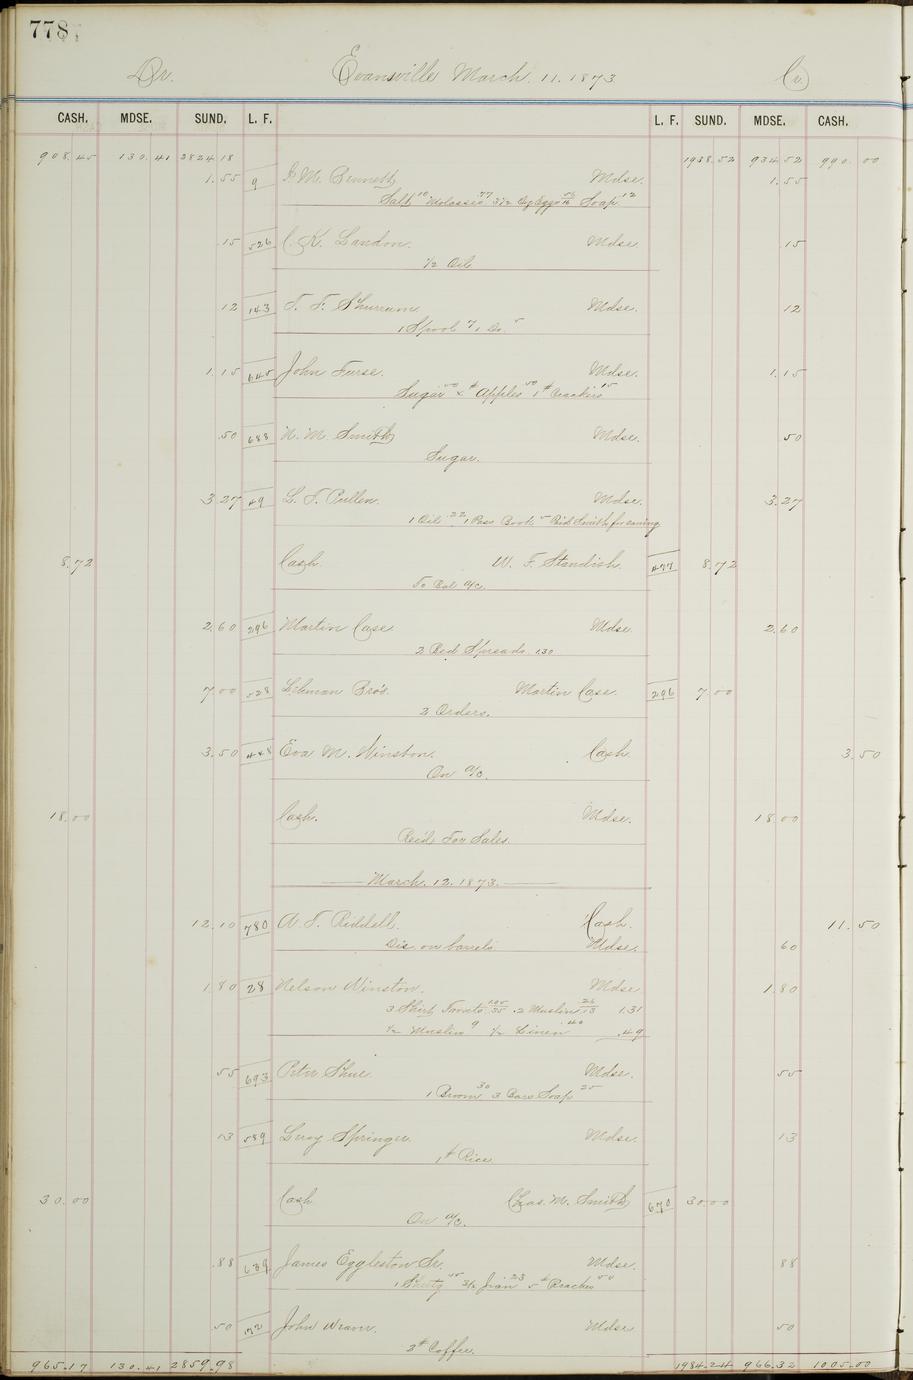 778
Dr. Evansville March. 11. 1873 Cr.
CASH. MDSE. SUND. L. F. L. F. SUND. MDSE. CASH.
908.45 130.41 2824.18 1938.52 934.52 990.00
1.55 9 M. Bennett Mdse. 1.55
Salt 10 Molasses 77 Eggs Soap 12
15 526 C. K. Landon. Mdse. 15
1/2 Oil
12 143 T. F. Shurrum Mdse. 12
1 Spool 7 1 Do. 5
1.15 645 John Furse. Mdse. 1.15
Sugar 50 # Apples 50 1# Crackers 15
.50 688 N. M. Smith Mdse. 50
Sugar.
3.27 49 L. T. Pullen. Mdse. 3.27
1 Oil 22 1 Pair Boots Smith for
8.72 Cash. W. F. Standish. 477 8.72
To Bal a/c.
2.60 296 Martin Case Mdse. 2.60
2 Bed Spreads 1.30
7.00 528 Lihman Bro's. Martin Case. 296 7.00
2 Orders.
3.50 448 Eva M. Winston. Cash. 3.50
On a/c.
18.00 Cash. Mdse. 18.00
Rec'd For Sales.
March. 12. 1873.
12.10 780 A. T. Riddell. Cash. 11.50
Dis. on barrels Mdse. 60
1.80 28 Nelson Winston. Mdse 1.80
3 Shirt Fronts 1.05 35 2 Muslin 26 13 1.31
1/2 Muslin 9 1/2 Linen 40 .49
55 693 Peter Shue Mdse. 55
1 Broom 30 3 Bars Soap 25
13 589 Leroy Springer. Mdse. 13
1# Rice
30.00 Cash Chas. M. Smith 670 30.00
On a/c.
.88 639 James Eggleston Sr. Mdse. 88
1 Jean 23 5# Peaches 50
50 72 John Weaver. Mdse 50
2# Coffee.
965.17 130.41 2859.98 1984.24 966.32 1005.00